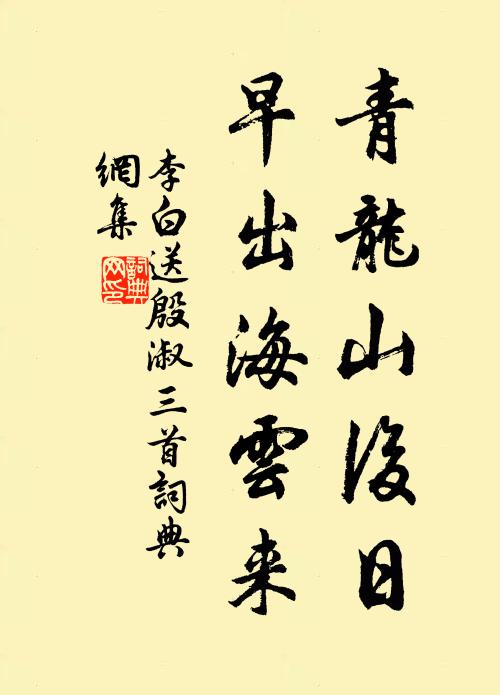 青龍山後日
早出海雲来
李白送殷淑三首詞典
網集
詞典
网印